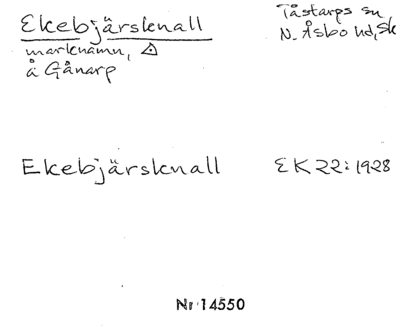 Ekebjärsknall
marknamn, △
å Gånarp
Tåstarps sn
N. Åsbo hd, Sk
Ekebjärsknall
EK 22:1928
Nr 14550